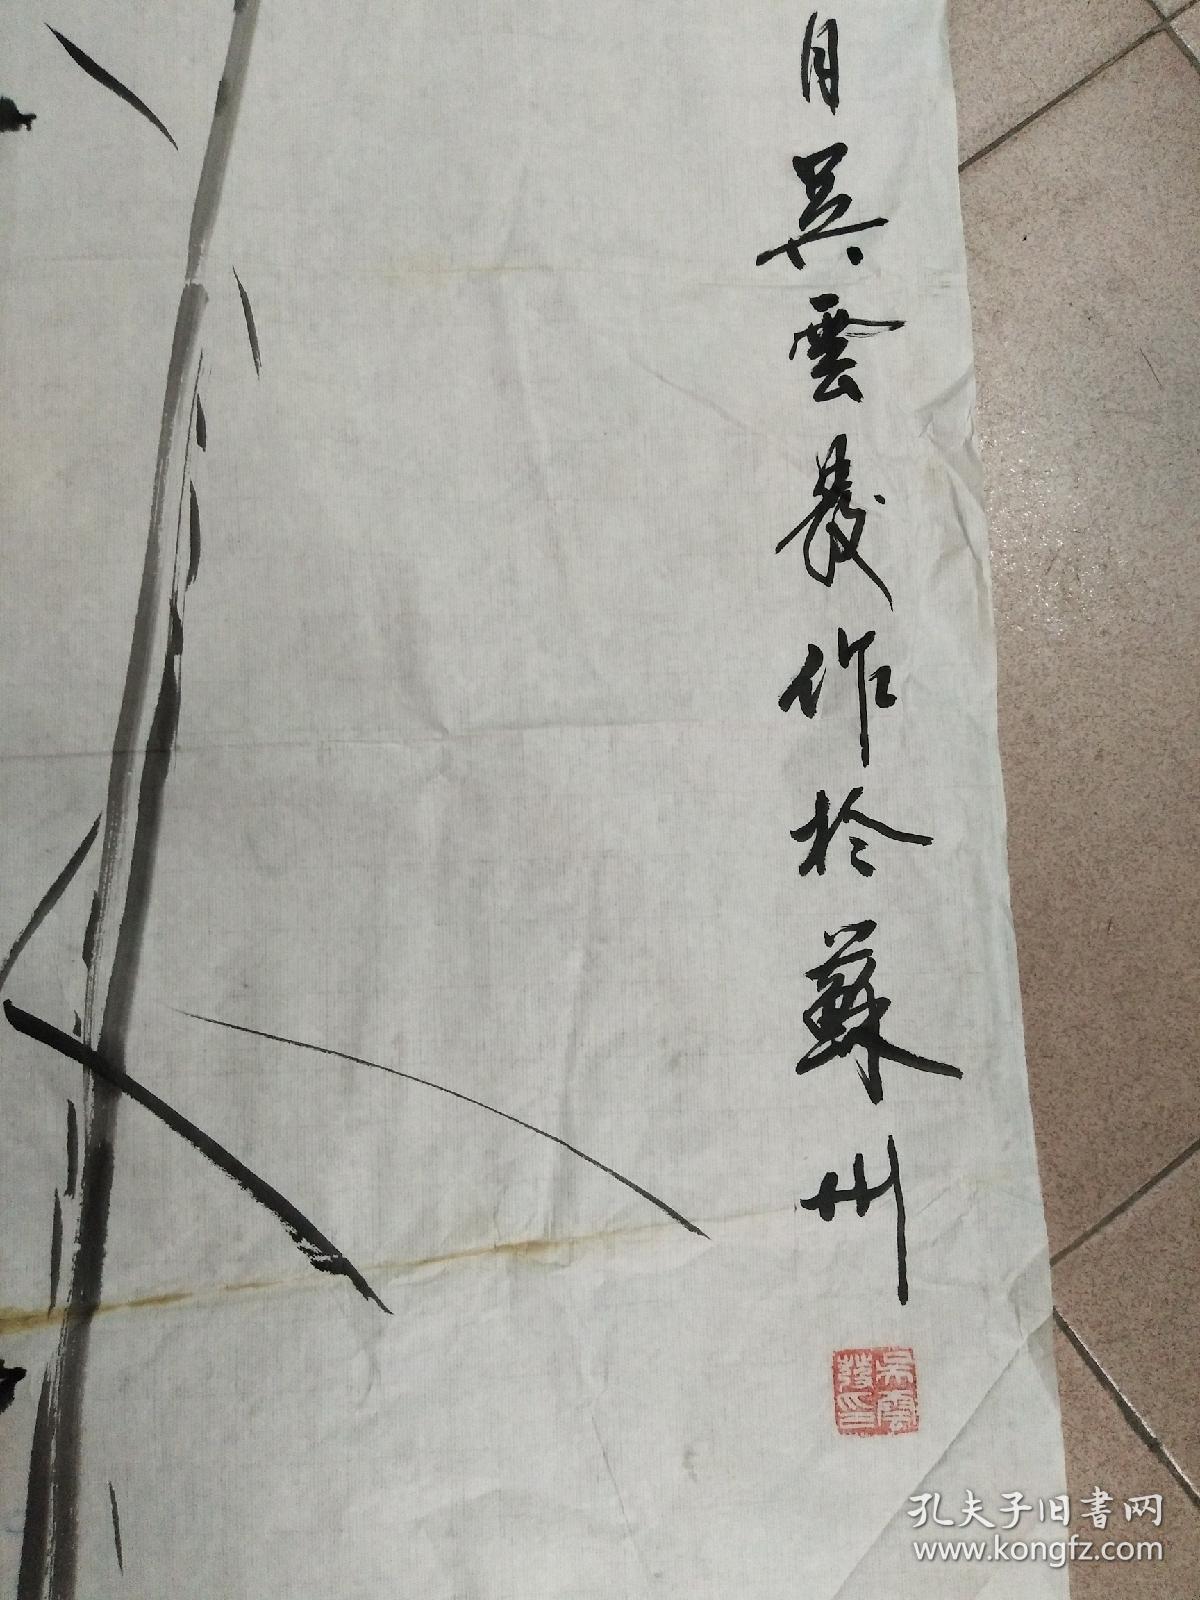 月吴雲發作於蘇州
吴雲
發印
孔夫子旧书网
www.kongfz.com